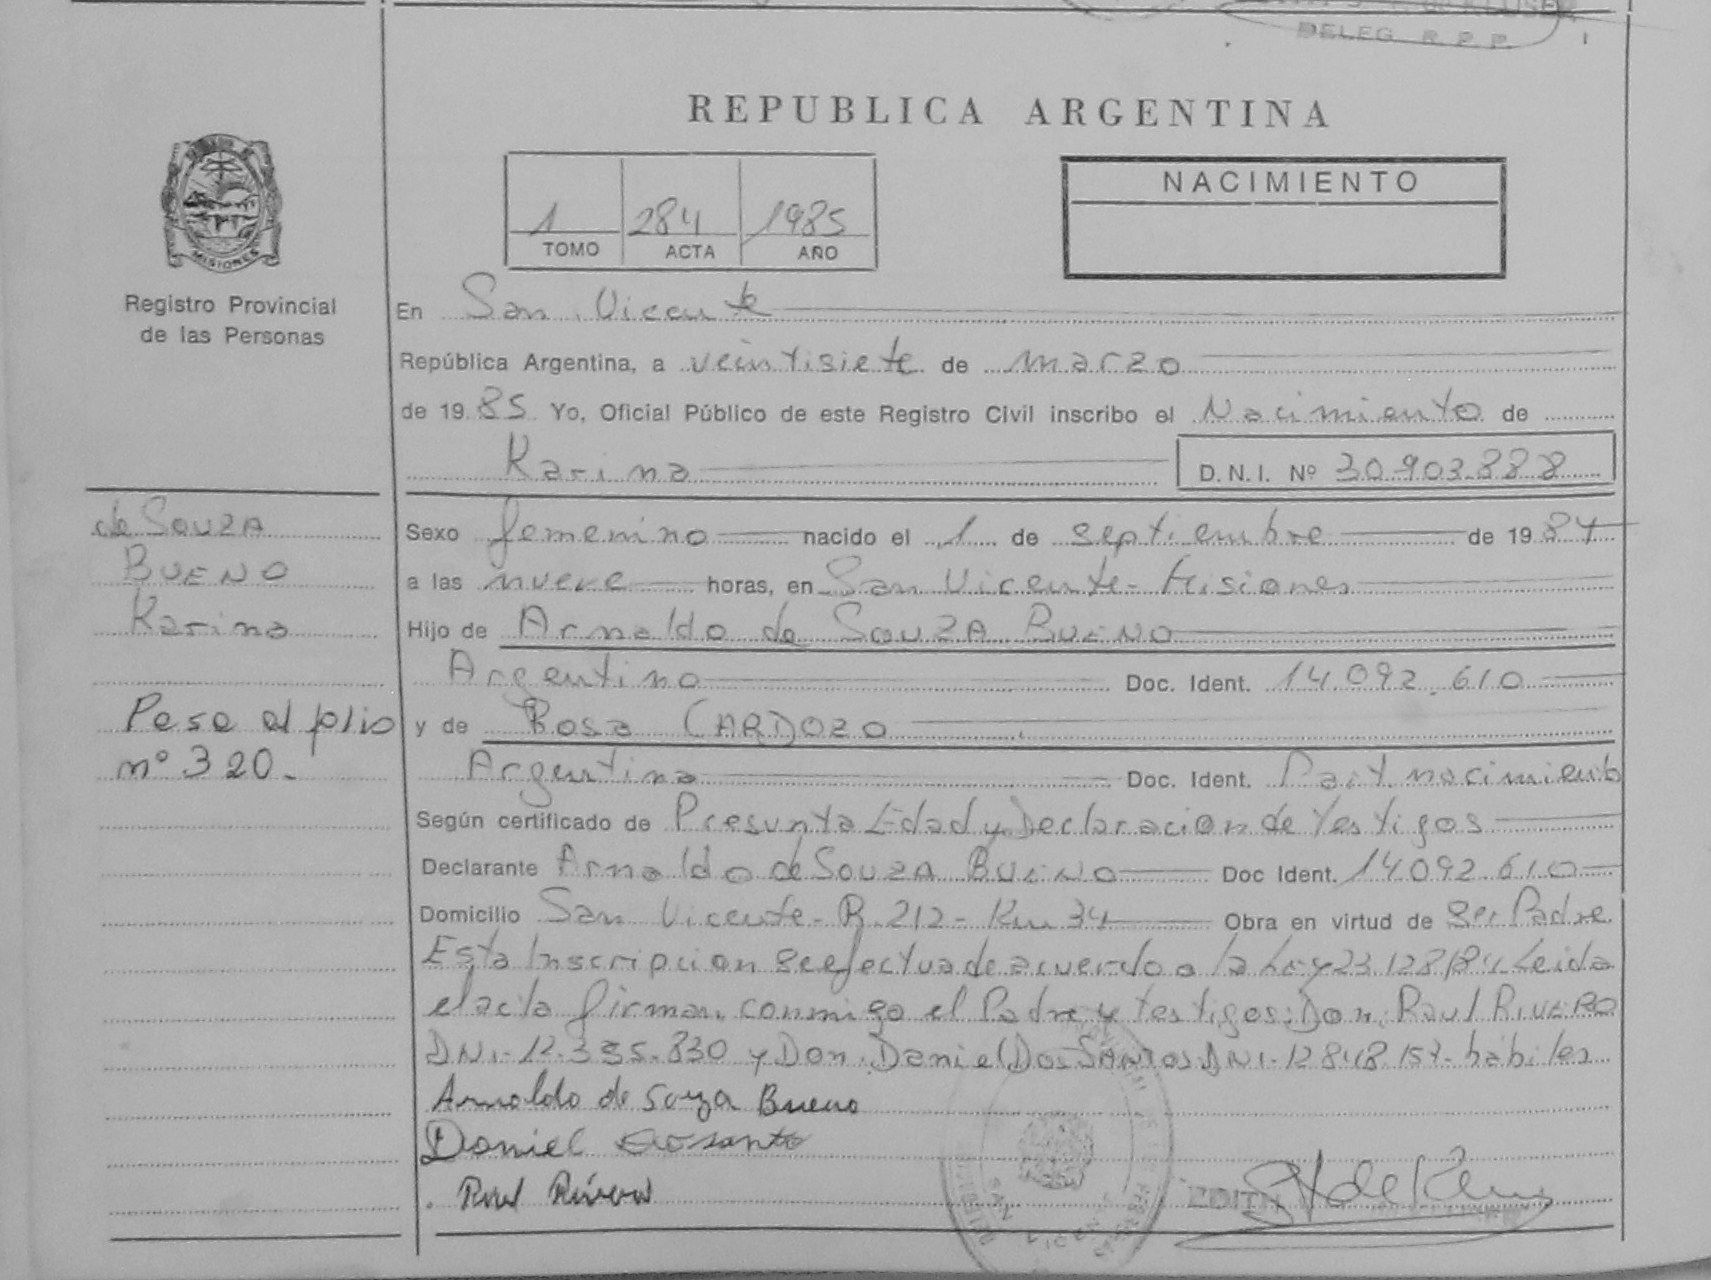 DELEG. R. P. P.
REPUBLICA ARGENTINA
1 284 1985
TOMO ACTA AÑO
NACIMIENTO
MISIONES
Registro Provincial
de las Personas
En San Vicente
República Argentina, a veintisiete de marzo
de 1985 Yo, Oficial Público de este Registro Civil inscribo el Nacimiento de
Karina D.N.I. Nº 30.903.888
de SOUZA
BUENO
Karina
Pasa al folio
nº 320.-
Sexo femenino nacido el 1 de septiembre de 1984
a las nueve horas, en San Vicente - Misiones
Hijo de Arnaldo de SOUZA BUENO
Argentino Doc. Ident. 14.092.610
y de Rosa CARDOZO
Argentina Doc. Ident. Part. nacimiento
Según certificado de Presunta Edad y Declaracion de Testigos
Declarante Arnaldo de SOUZA BUENO Doc Ident. 14.092.610
Domicilio San Vicente - R. 212 - Km 34 Obra en virtud de Ser Padre
Esta Inscripcion se efectua de acuerdo a la Ley 23.128/84, Leida
el acta firman conmigo el Padre y testigos: Don. Raul RIVERO
DNI - 12.335.830 y Don. Daniel DOS SANTOS DNI - 12.848.157 - habiles
Arnaldo de Souza Bueno
Daniel Dosanto
Raul Rivero
EDITH